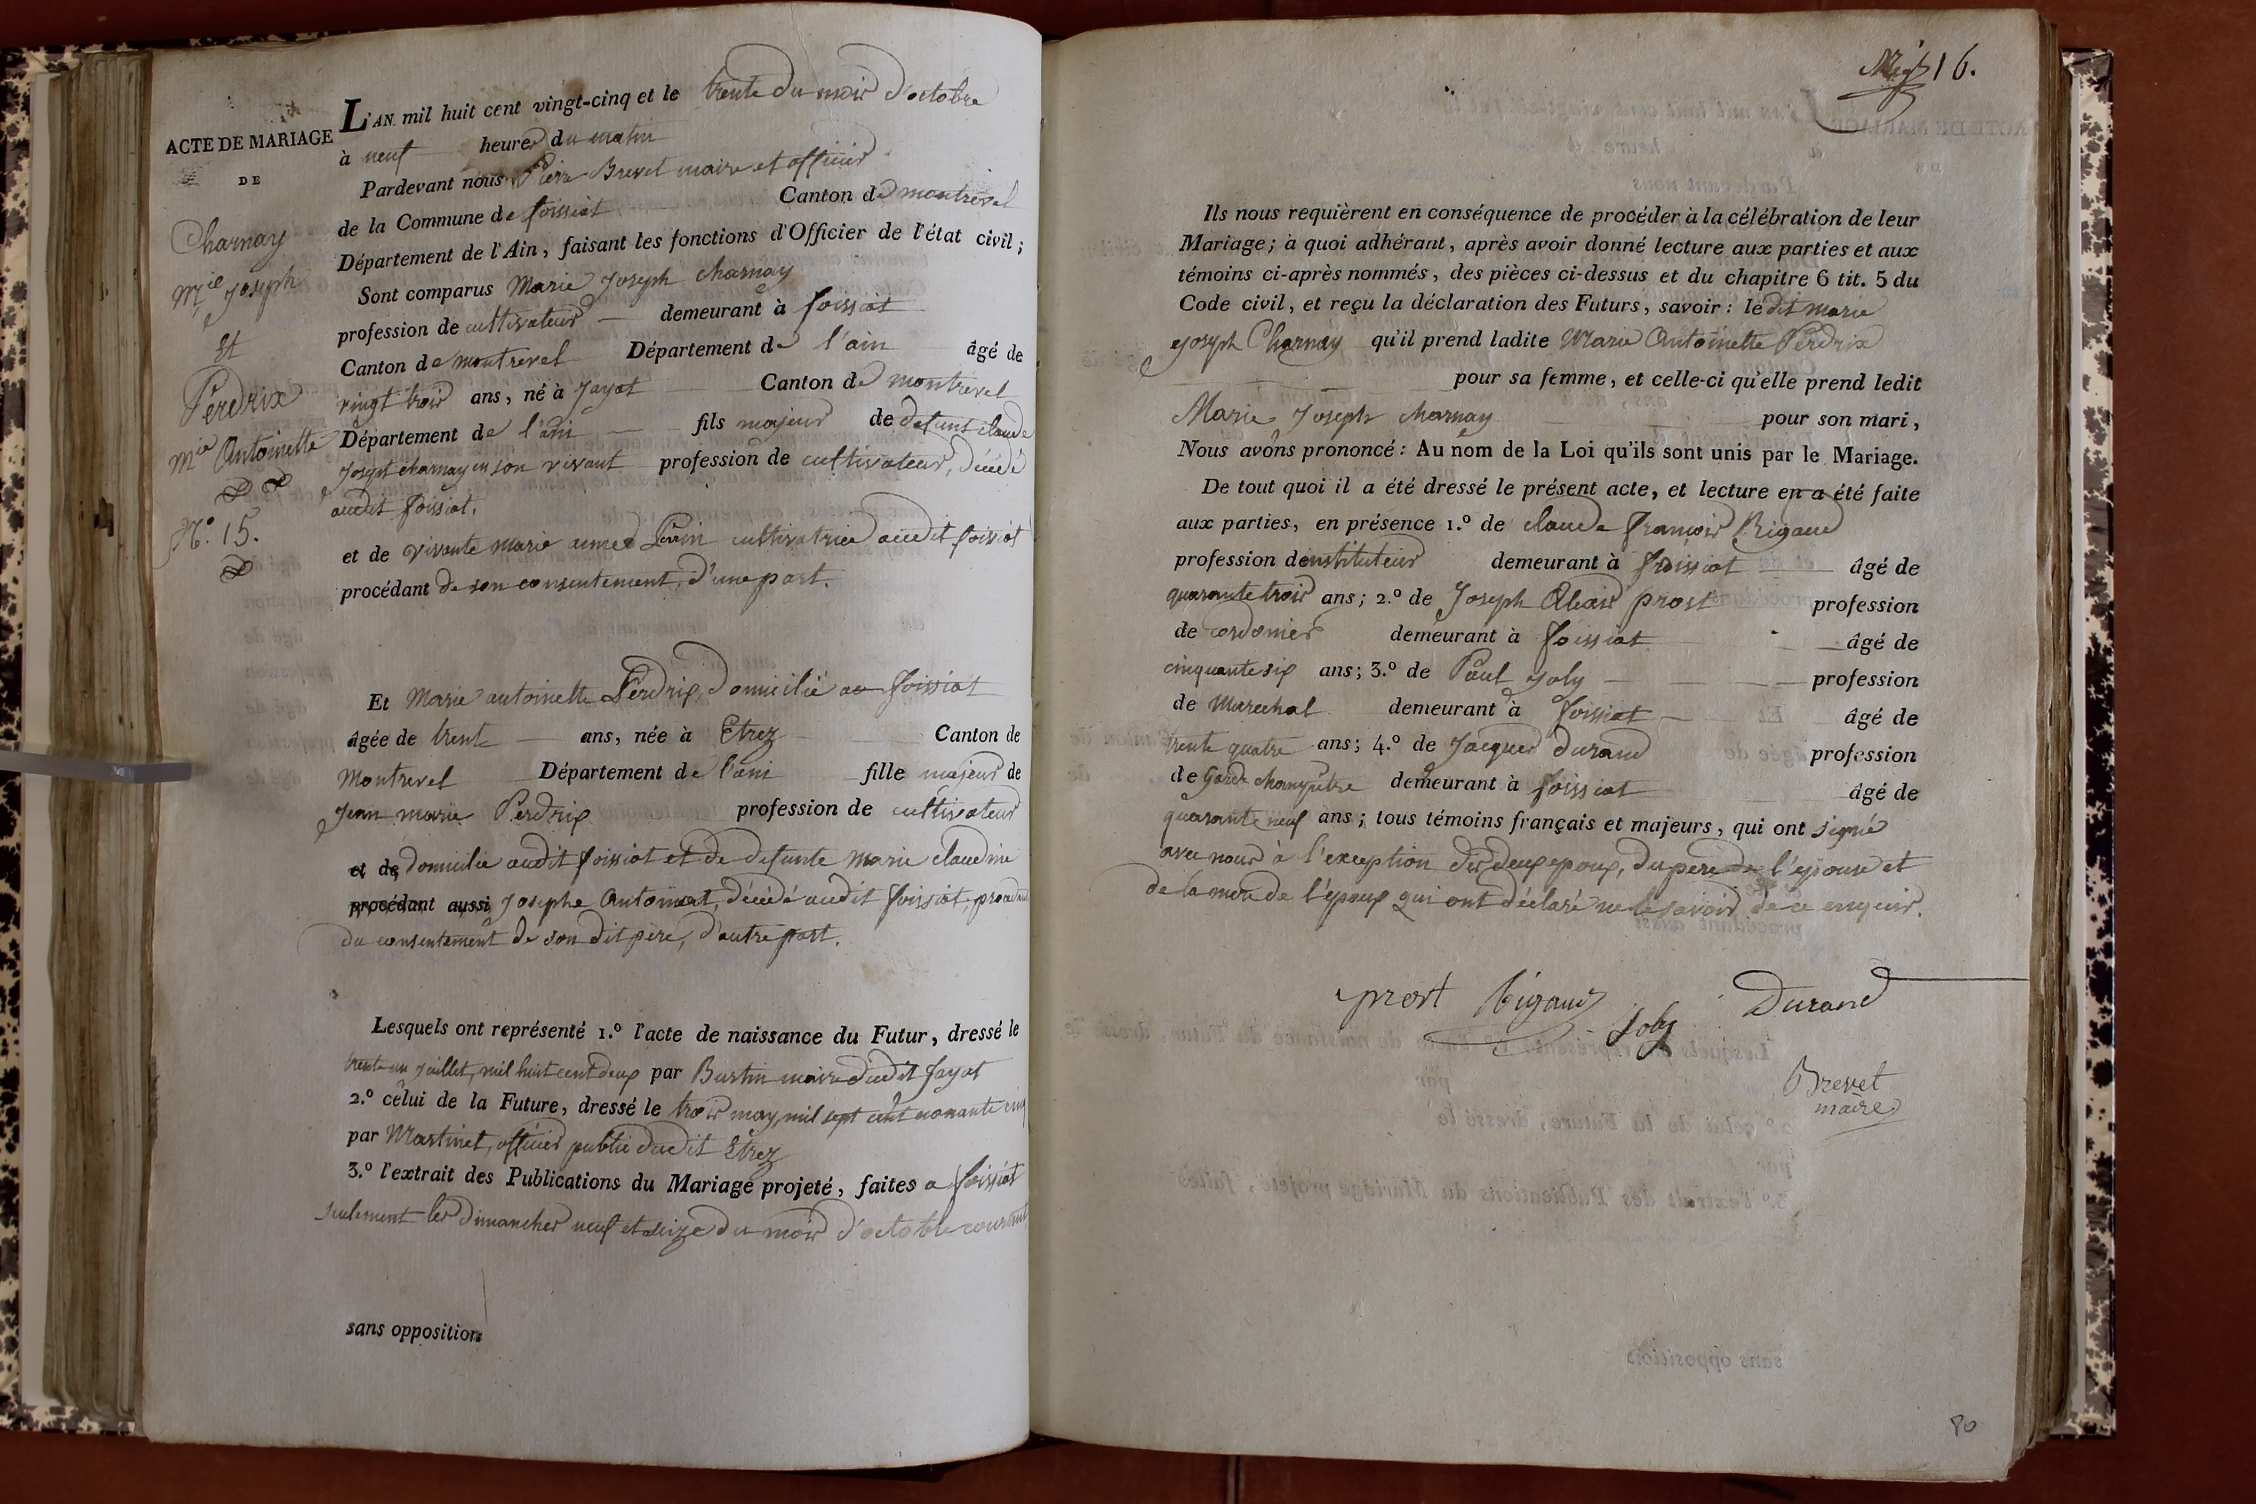 ACTE DE MARIAGE
DE
Charnay
Mie Joseph
Et
Perdrix
Mie Antoinette
N.° 15.
L'AN mil huit cent vingt-cinq et le trente du mois d'octobre
à neuf heures du matin
Pardevant nous Pierre Brevet maire et officier
de la Commune de foissiat Canton de montrevel
Département de l'Ain, faisant les fonctions d'Officier de l'état civil;
Sont comparus Marie Joseph charnay
profession de cultivateur demeurant à foissiat
Canton de montrevel Département de l'ain âgé de
vingt trois ans, né à Jayat Canton de montrevel
Département de l'ain fils majeur de defunt claude
Joseph charnay en son vivant profession de cultivateur, décédé
audit foissiat.
et de vivante marie aimée cultivatrice audit foissiat
procédant de son consentement, d'une part.
Et Marie antoinette Perdrix, domicilié au foissiat
âgée de trente ans, née à Etrez Canton de
Montrevel Département de l'ain fille majeur de
Jean marie Perdrix profession de cultivateur
et de domicilié audit foissiat et de defunte Marie claudine
procédant aussi Josephe Antoinat, décédé audit foissiat, procédant
du consentement de son dit père, d'autre part.
Lesquels ont représenté 1.° l'acte de naissance du Futur, dressé le
trente un juillet, mil huit cent deux par Burtin maire dudit Jayat
2.° celui de la Future, dressé le trois may, mil sept cent nonante cinq
par Martinet, officier public dudit Etrez
3.° l'extrait des Publications du Mariage projeté, faites a foissiat
seulement les dimanches neuf et seize du mois d'octobre courant
sans opposition
16.
Ils nous requièrent en conséquence de procéder à la célébration de leur
Mariage; à quoi adhérant, après avoir donné lecture aux parties et aux
témoins ci-après nommés, des pièces ci-dessus et du chapitre 6 tit. 5 du
Code civil, et reçu la déclaration des Futurs, savoir: le dit marie
Joseph Charnay qu'il prend ladite Marie Antoinette Perdrix
pour sa femme, et celle-ci qu'elle prend ledit
Marie Joseph charnay pour son mari,
Nous avons prononcé: Au nom de la Loi qu'ils sont unis par le Mariage.
De tout quoi il a été dressé le présent acte, et lecture en a été faite
aux parties, en présence 1.° de claude francois Rigaud
profession d'instituteur demeurant à foissiat âgé de
quarante trois ans; 2.° de Joseph Alexis prost profession
de cordonier demeurant à foissiat âgé de
cinquante six ans; 3.° de Paul Joly profession
de Marechal demeurant à foissiat âgé de
trente quatre ans; 4.° de Jacques durand profession
de Garde champêtre demeurant à foissiat âgé de
quarante neuf ans; tous témoins français et majeurs, qui ont signé
avec nous à l'exception des deux epoux, du père de l'epouse et
de la mere de l'époux qui ont déclaré ne le savoir de ce enquis.
prost Rigaud Joly Durand
Brevet
maire
80